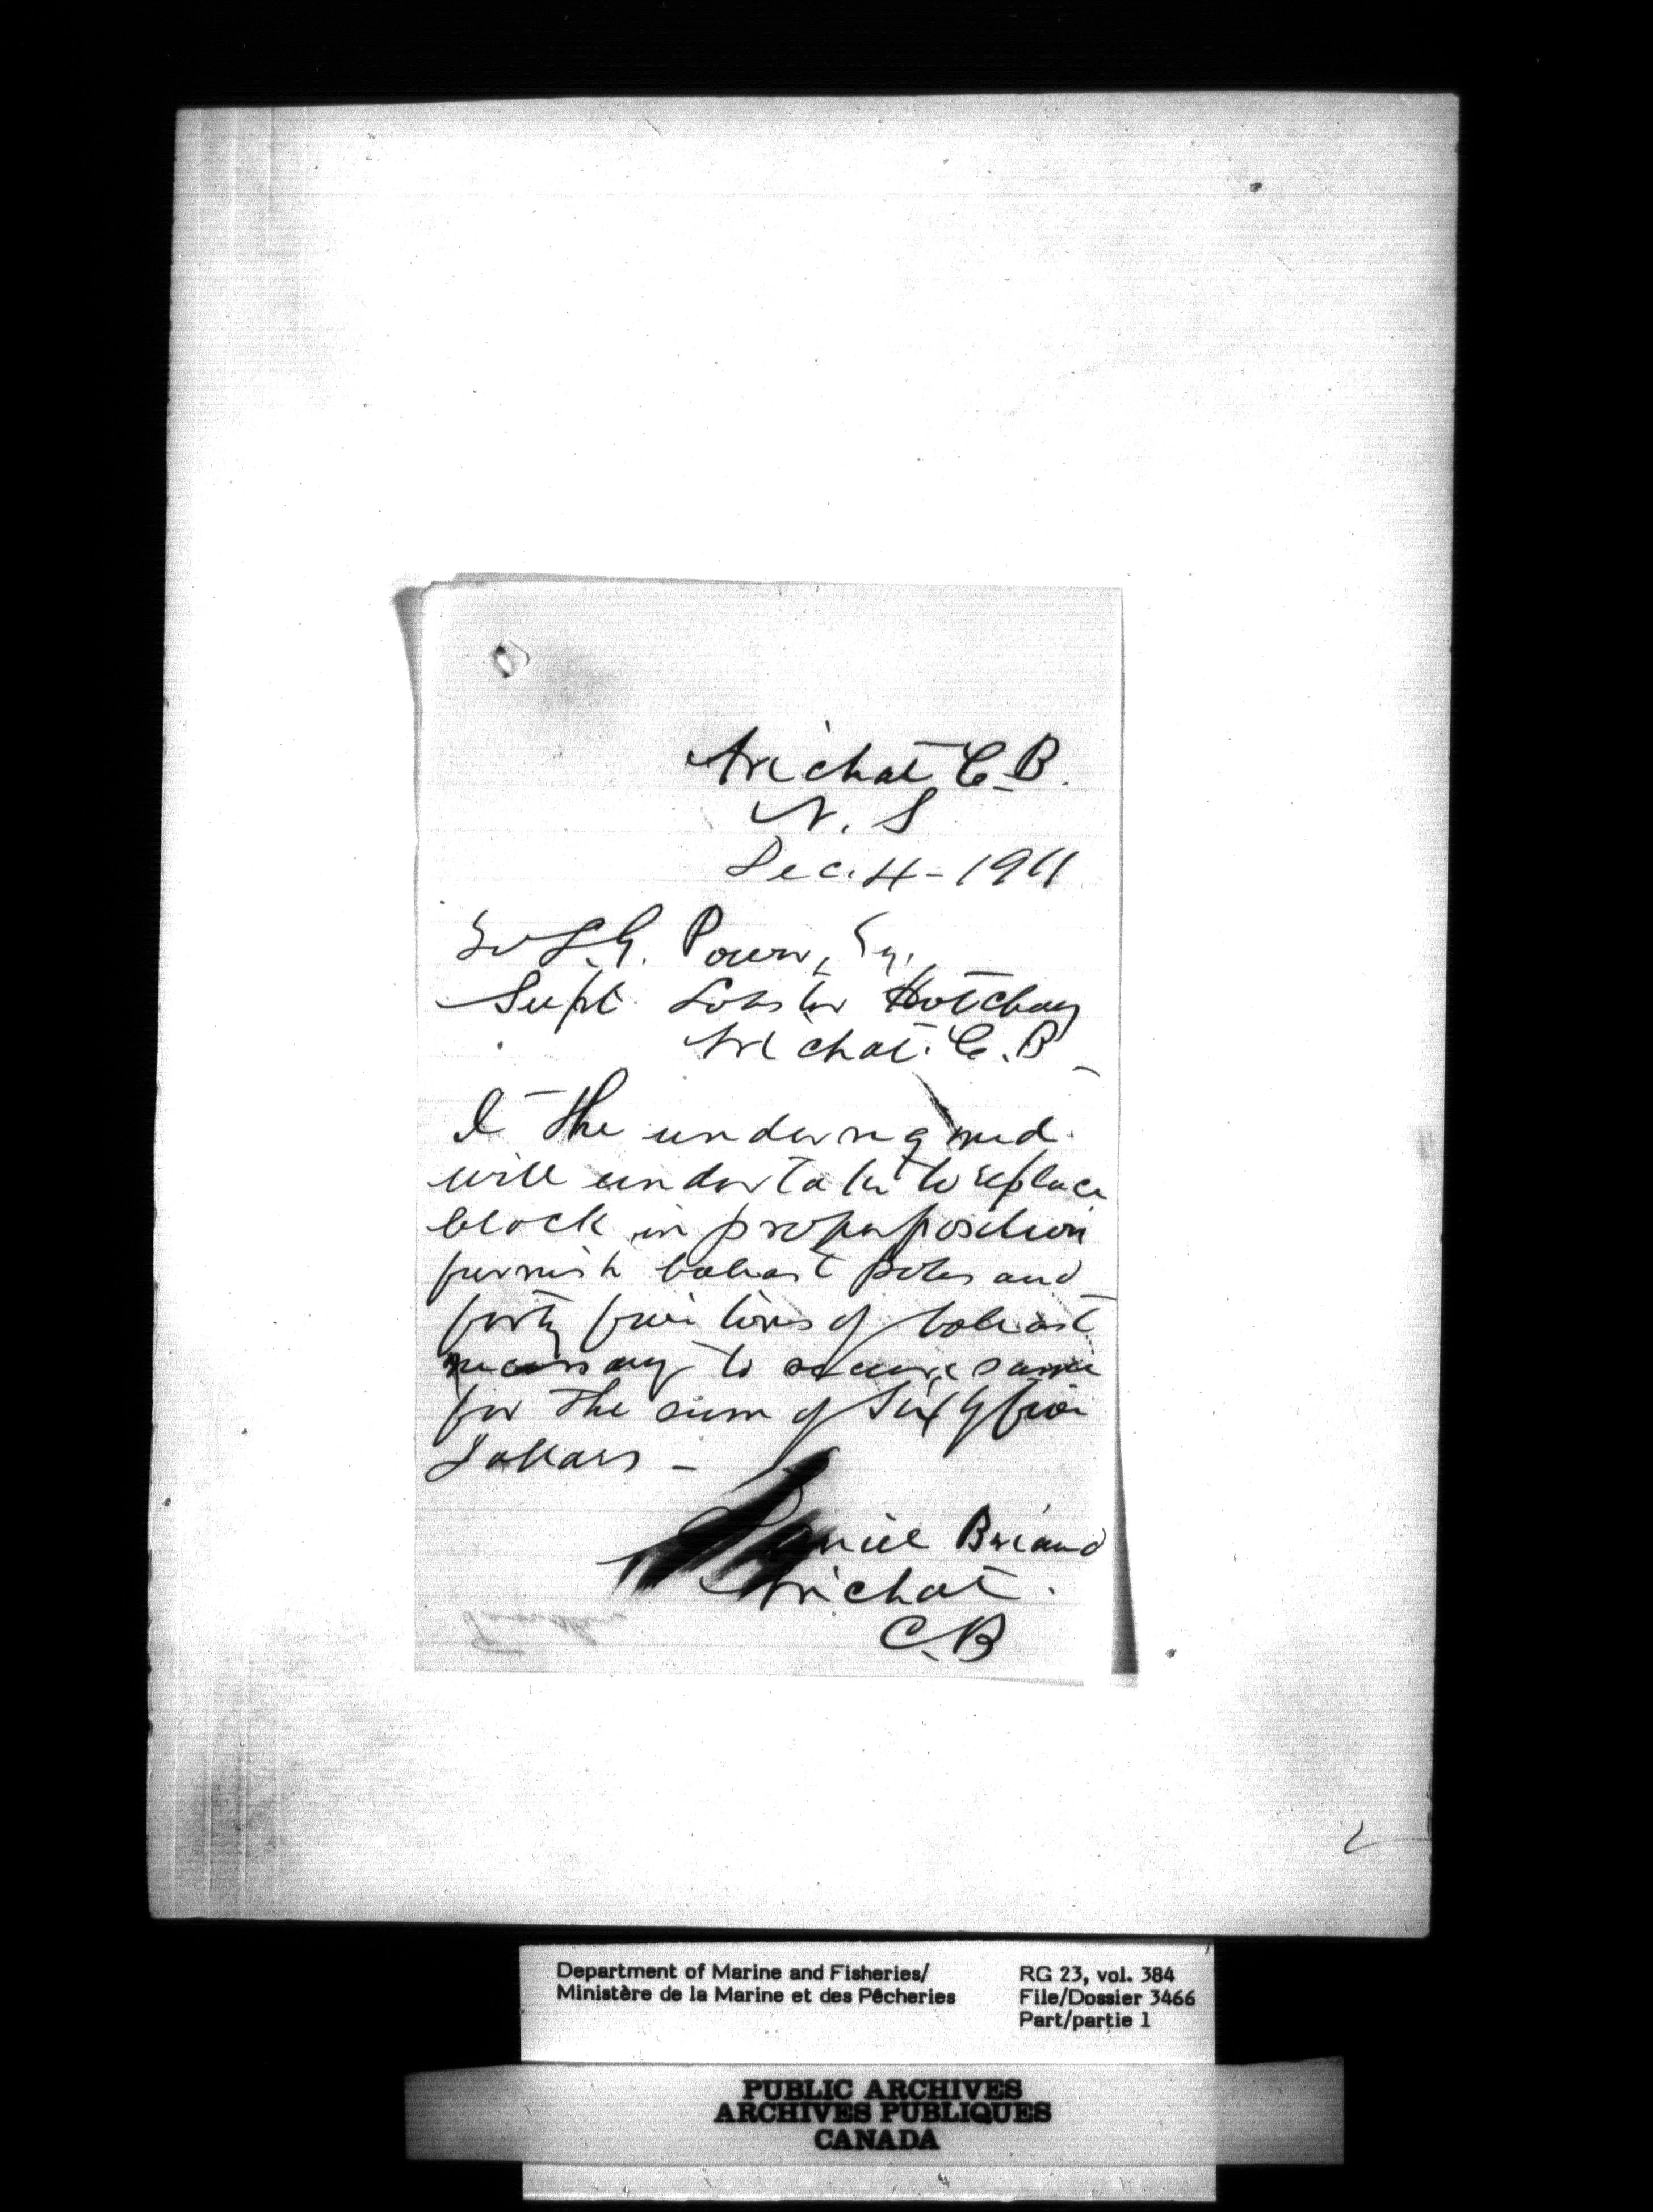 Arichat C-B.
N. S
Dec. 4 - 1911
To S.G. Power, Esq.
Supt. Lobster Hatchery
Arichat. C.B -
I the undersigned
will undertake to replace
block in proper position
furnish balast poles and
forty five tons of balast
necessary to secure same
for the sum of Sixty five
Dollars -
Daniel Briand
Arichat.
C.B
Department of Marine and Fisheries/
Ministère de la Marine et des Pêcheries
RG 23, vol. 384
File/Dossier 3466
Part/partie 1
PUBLIC ARCHIVES
ARCHIVES PUBLIQUES
CANADA